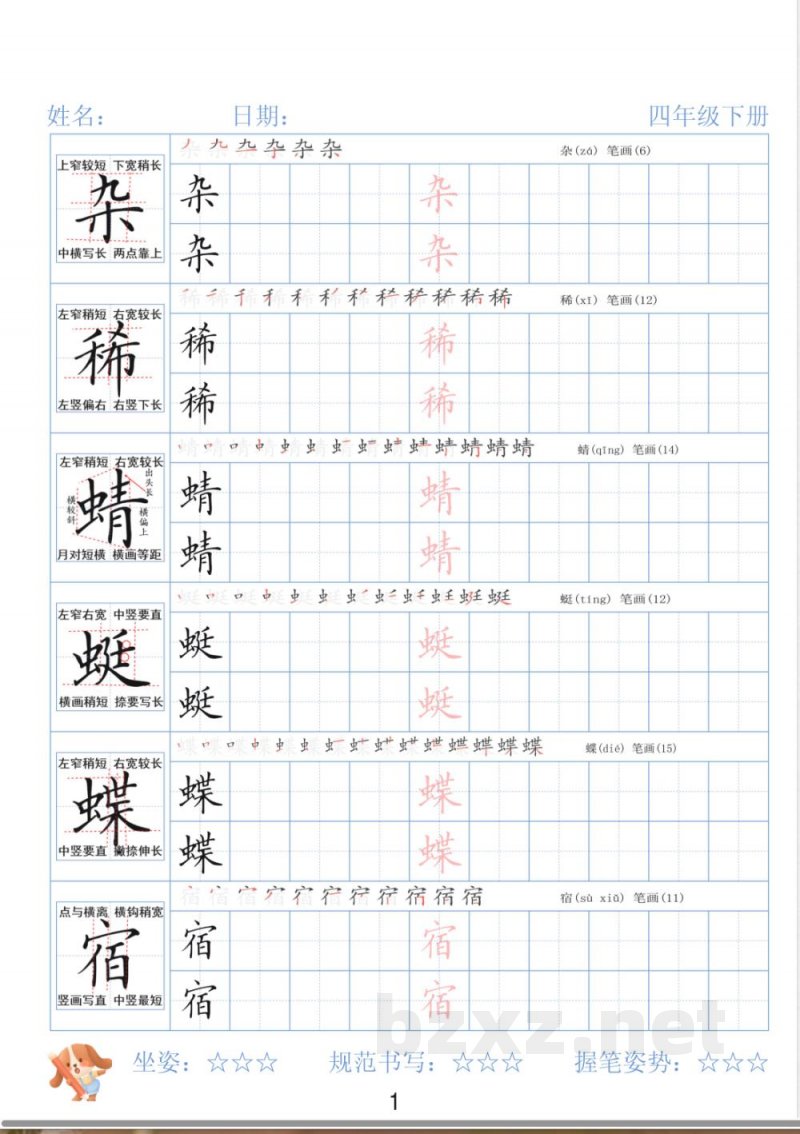 姓名： 日期： 四年级下册
杂(zá) 笔画(6)
上窄较短 下宽稍长
杂
中横写长 两点靠上
杂 杂
杂 杂
稀(xī) 笔画(12)
左窄稍短 右宽较长
稀
左竖偏右 右竖下长
稀 稀
稀 稀
蜻(qīng) 笔画(14)
左窄稍短 右宽较长
出头长
横较斜
横偏上
蜻
月对短横 横画等距
蜻 蜻
蜻 蜻
蜓(tíng) 笔画(12)
左窄右宽 中竖要直
蜓
横画稍短 捺要写长
蜓 蜓
蜓 蜓
蝶(dié) 笔画(15)
左窄稍短 右宽较长
蝶
中竖要直 撇捺伸长
蝶 蝶
蝶 蝶
宿(sù xiǔ) 笔画(11)
点与横离 横钩稍宽
宿
竖画写直 中竖最短
宿 宿
宿 宿
bzxz.net
坐姿：☆☆☆ 规范书写：☆☆☆ 握笔姿势：☆☆☆
1